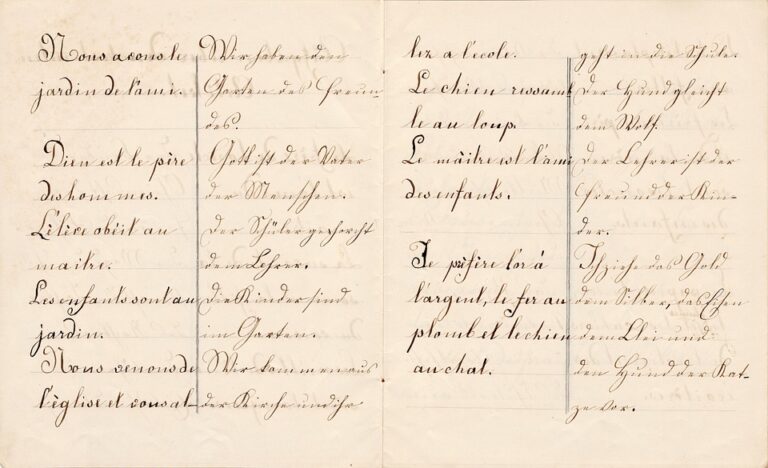 Nous avons le
jardin de l'ami.
Dieu est le père
des hommes.
L'élève obéit au
maitre.
Les enfants sont au
jardin.
Nous venons de
l'église et vous al-
Wir haben den
Garten des Freun-
des.
Gott ist der Vater
der Menschen.
Der Schüler gehorcht
dem Lehrer.
Die Kinder sind
im Garten.
Wir kommen aus
der Kirche und ihr
lez a l'école.
Le chien ressamb
le au loup.
Le maître est l'ami
des enfants.
Je préfère l'or à
l'argent, le fer au
plomb et le chien
au chat.
geht in die Schule.
Der Hund gleicht
dem Wolf.
Der Lehrer ist der
Freund der Kin-
der.
Ich ziehe das Gold
dem Silber, das Eisen
dem Blei und
den Hund der Kat-
ze vor.